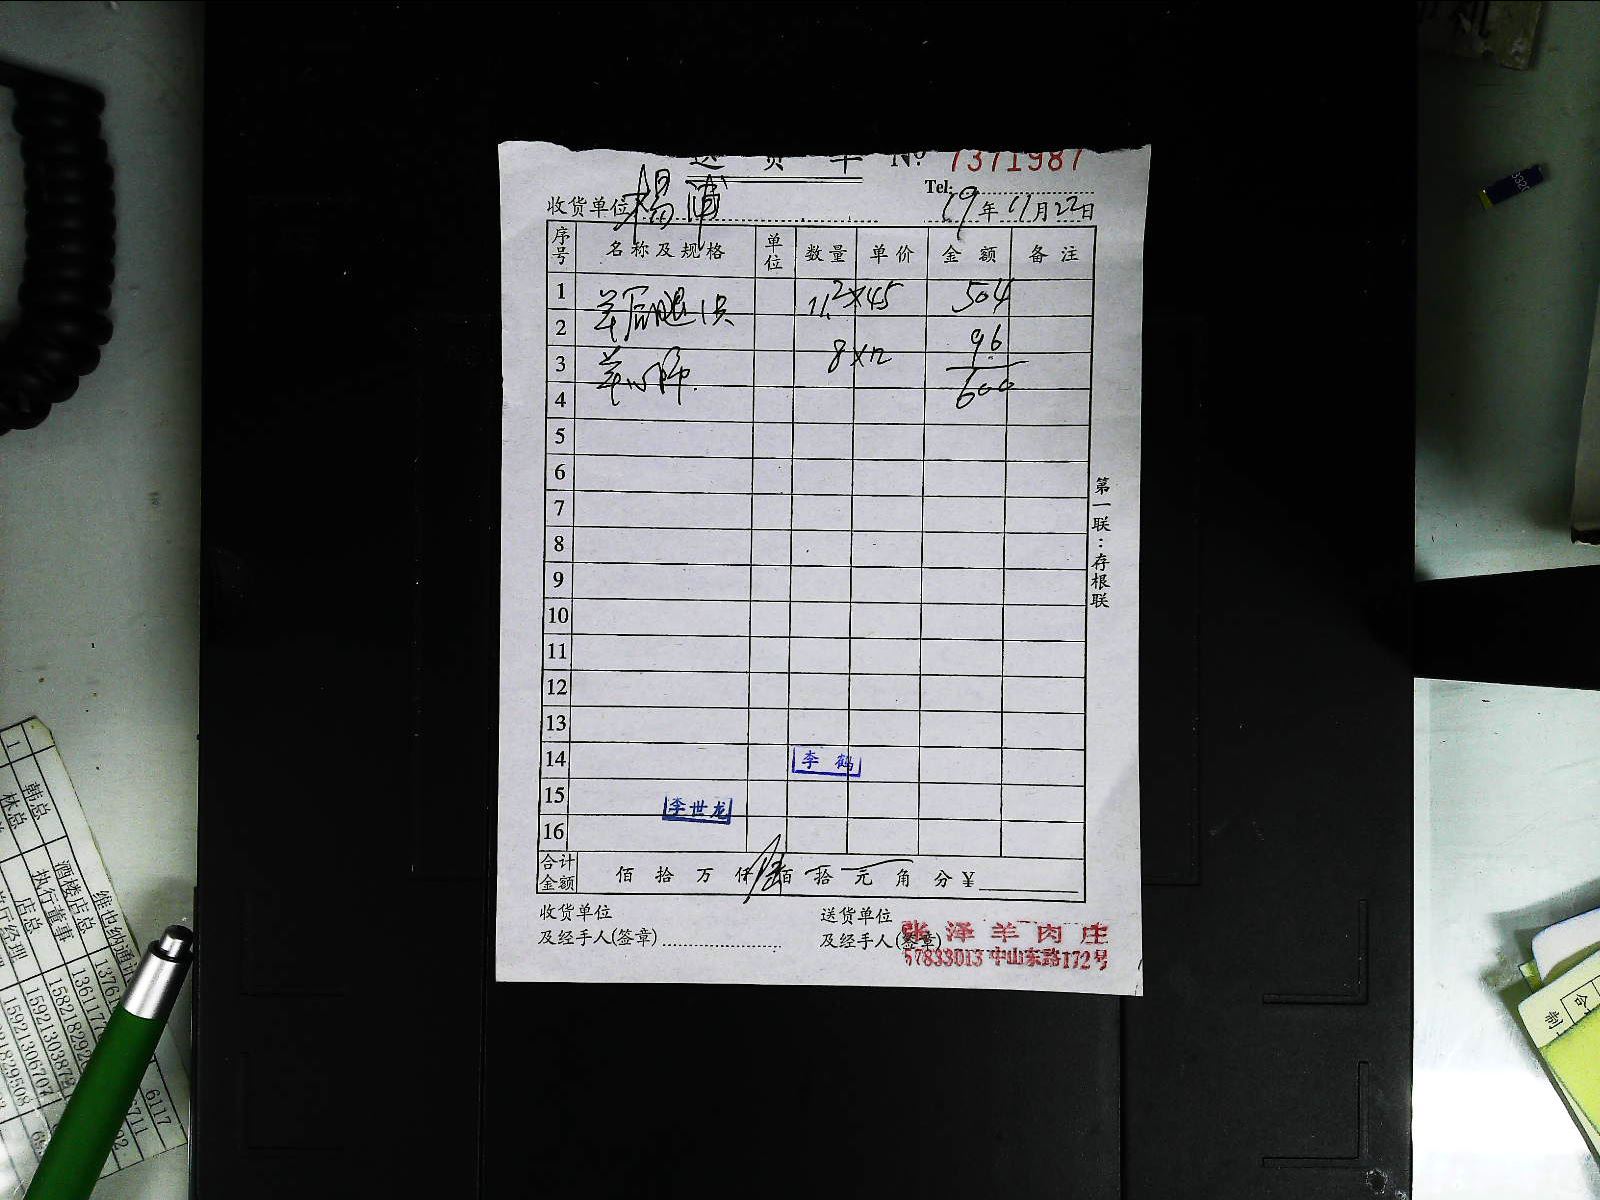 送货单 № 7371987
Tel:
收货单位 杨浦 19年11月22日
序号 名称及规格 单位 数量 单价 金额 备注
1 羊后腿 11.2×45 504
2 96
3 羊 8×12
4 600
5
6
7
8
9
10
11
12
13
14 李鹤
15 李世龙
16
合计金额 佰拾万仟陆佰拾元角分¥
收货单位 送货单位
及经手人(签章) 及经手人(签章)
张泽羊肉庄
57833013 中山东路172号
第一联:存根联
1 韩总 酒楼店总 维也纳通讯
林总 执行董事
店总
6117